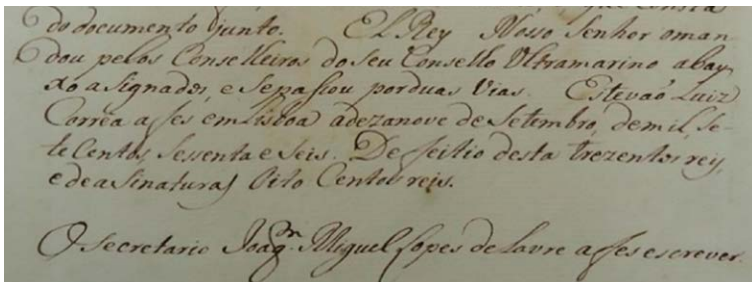 do documento junto. El Rey Nosso Senhor oman
dou pelos Conselheiros do seu Consello Ultramarino abay
xo asignados, e sepassou por duas Vias. Estevaõ Luiz
Corrêa afes em Lisboa adezanove de Setembro, demil, Se-
te Centos, Sessenta e Seis. De feitio desta trezentos reis,
e de asinaturas Oito Centos reis.
O Secretario Joaqm. Miguel Lopes de Lavre afes escrever.